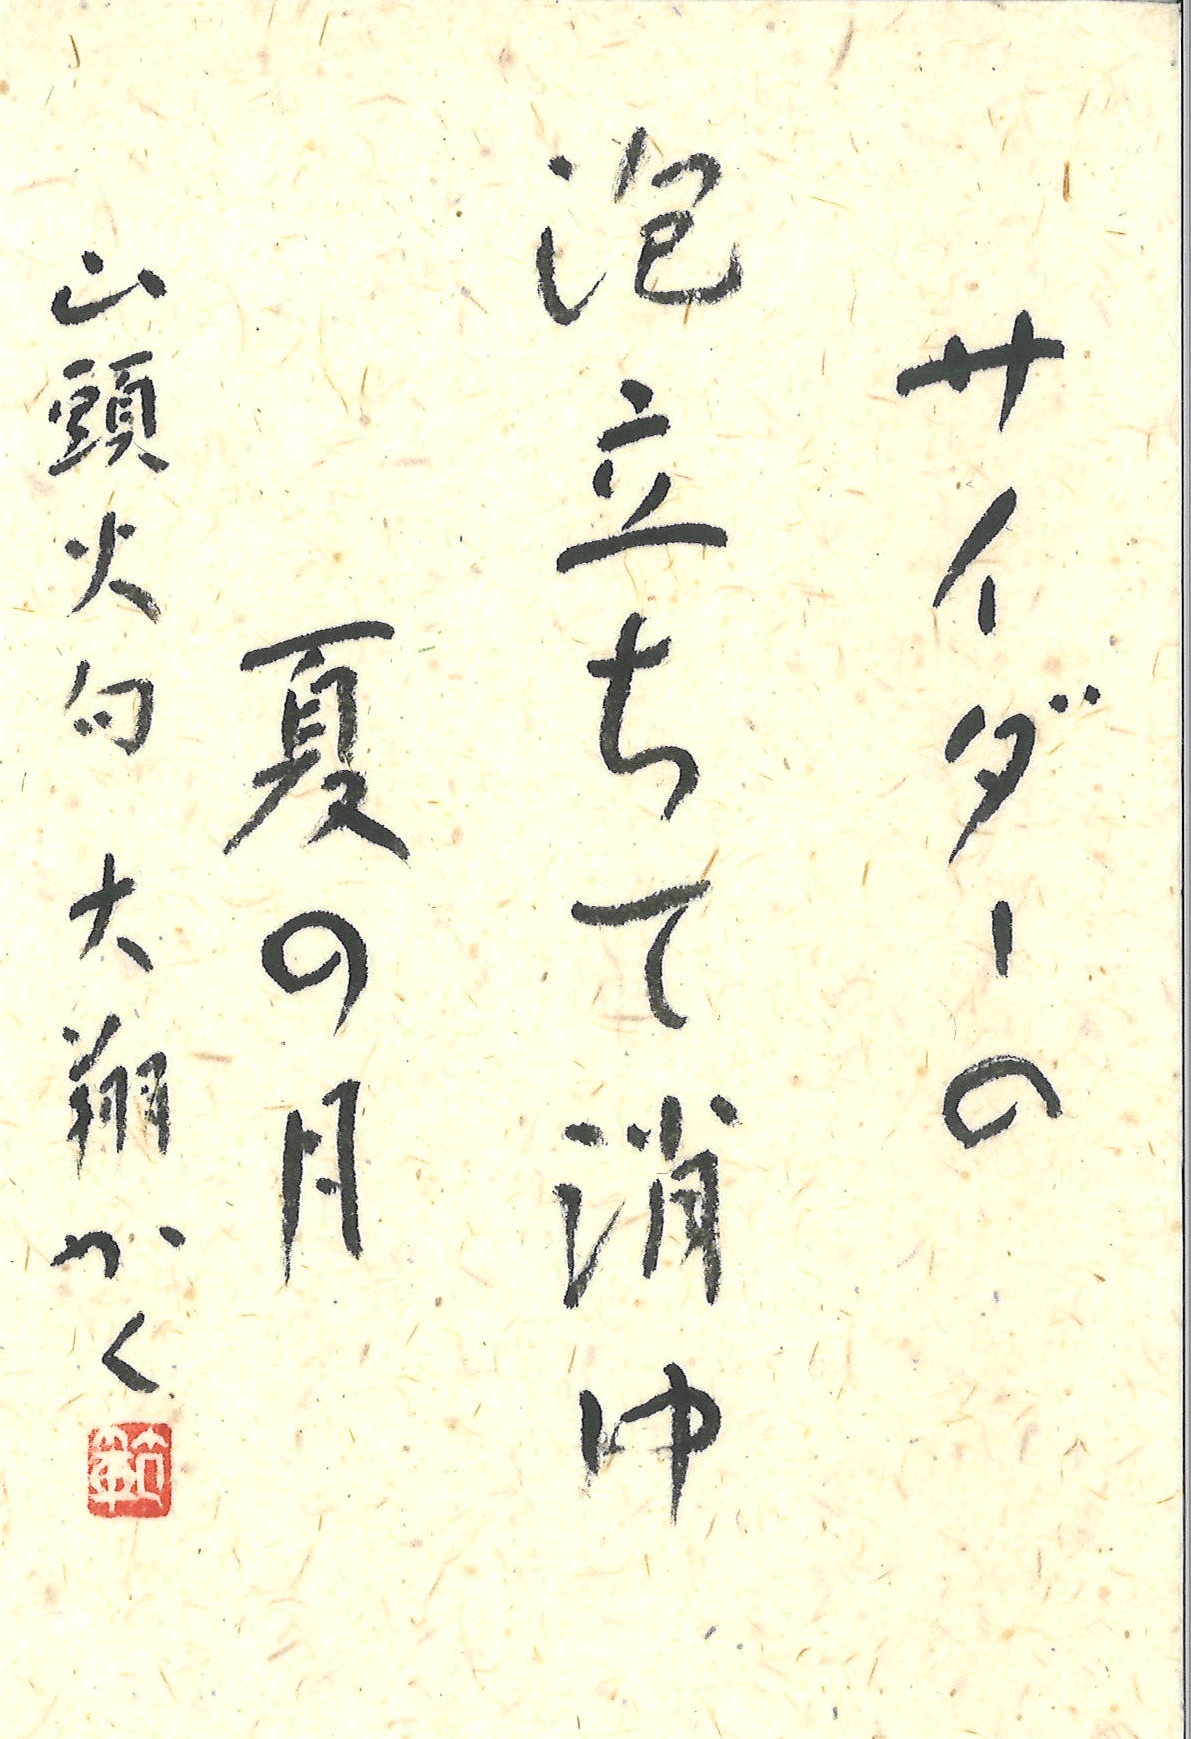 サイダーの
泡立ちて消ゆ
夏の月
山頭火句 大翔かく